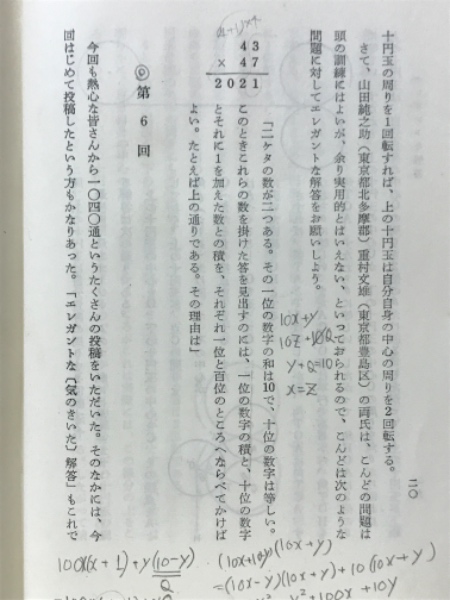 十円玉の周りを1回転すれば、上の十円玉は自分自身の中心の周りを2回転する。
さて、山田純之助（東京都北多摩郡）重村文雄（東京都豊島区）の両氏は、こんどの問題は
頭の訓練にはよいが、余り実用的とはいえない、といっておられるので、こんどは次のような
問題に対してエレガントな解答をお願いしよう。
「二ケタの数が二つある。その一位の数字の和は10で、十位の数字は等しい。
このときこれらの数を掛けた答を見出すのには、一位の数字の積と、十位の数字
とそれに1を加えた数との積を、それぞれ一位と百位のところへならべてかけば
よい。たとえば上の通りである。その理由は」
43
× 47
2021
◎第6回
今回も熱心な皆さんから一〇四〇通というたくさんの投稿をいただいた。そのなかには、今
回はじめて投稿したという方もかなりあった。「エレガントな〔気のきいた〕解答」もこれで
二〇
10x+y
y+Q=10
x=Z
100x(x+1)+y(10-y)
Q
(10x+10-y)(10x+y)
=(10x-y)(10x+y)+10(10x+y)
+100x+10y